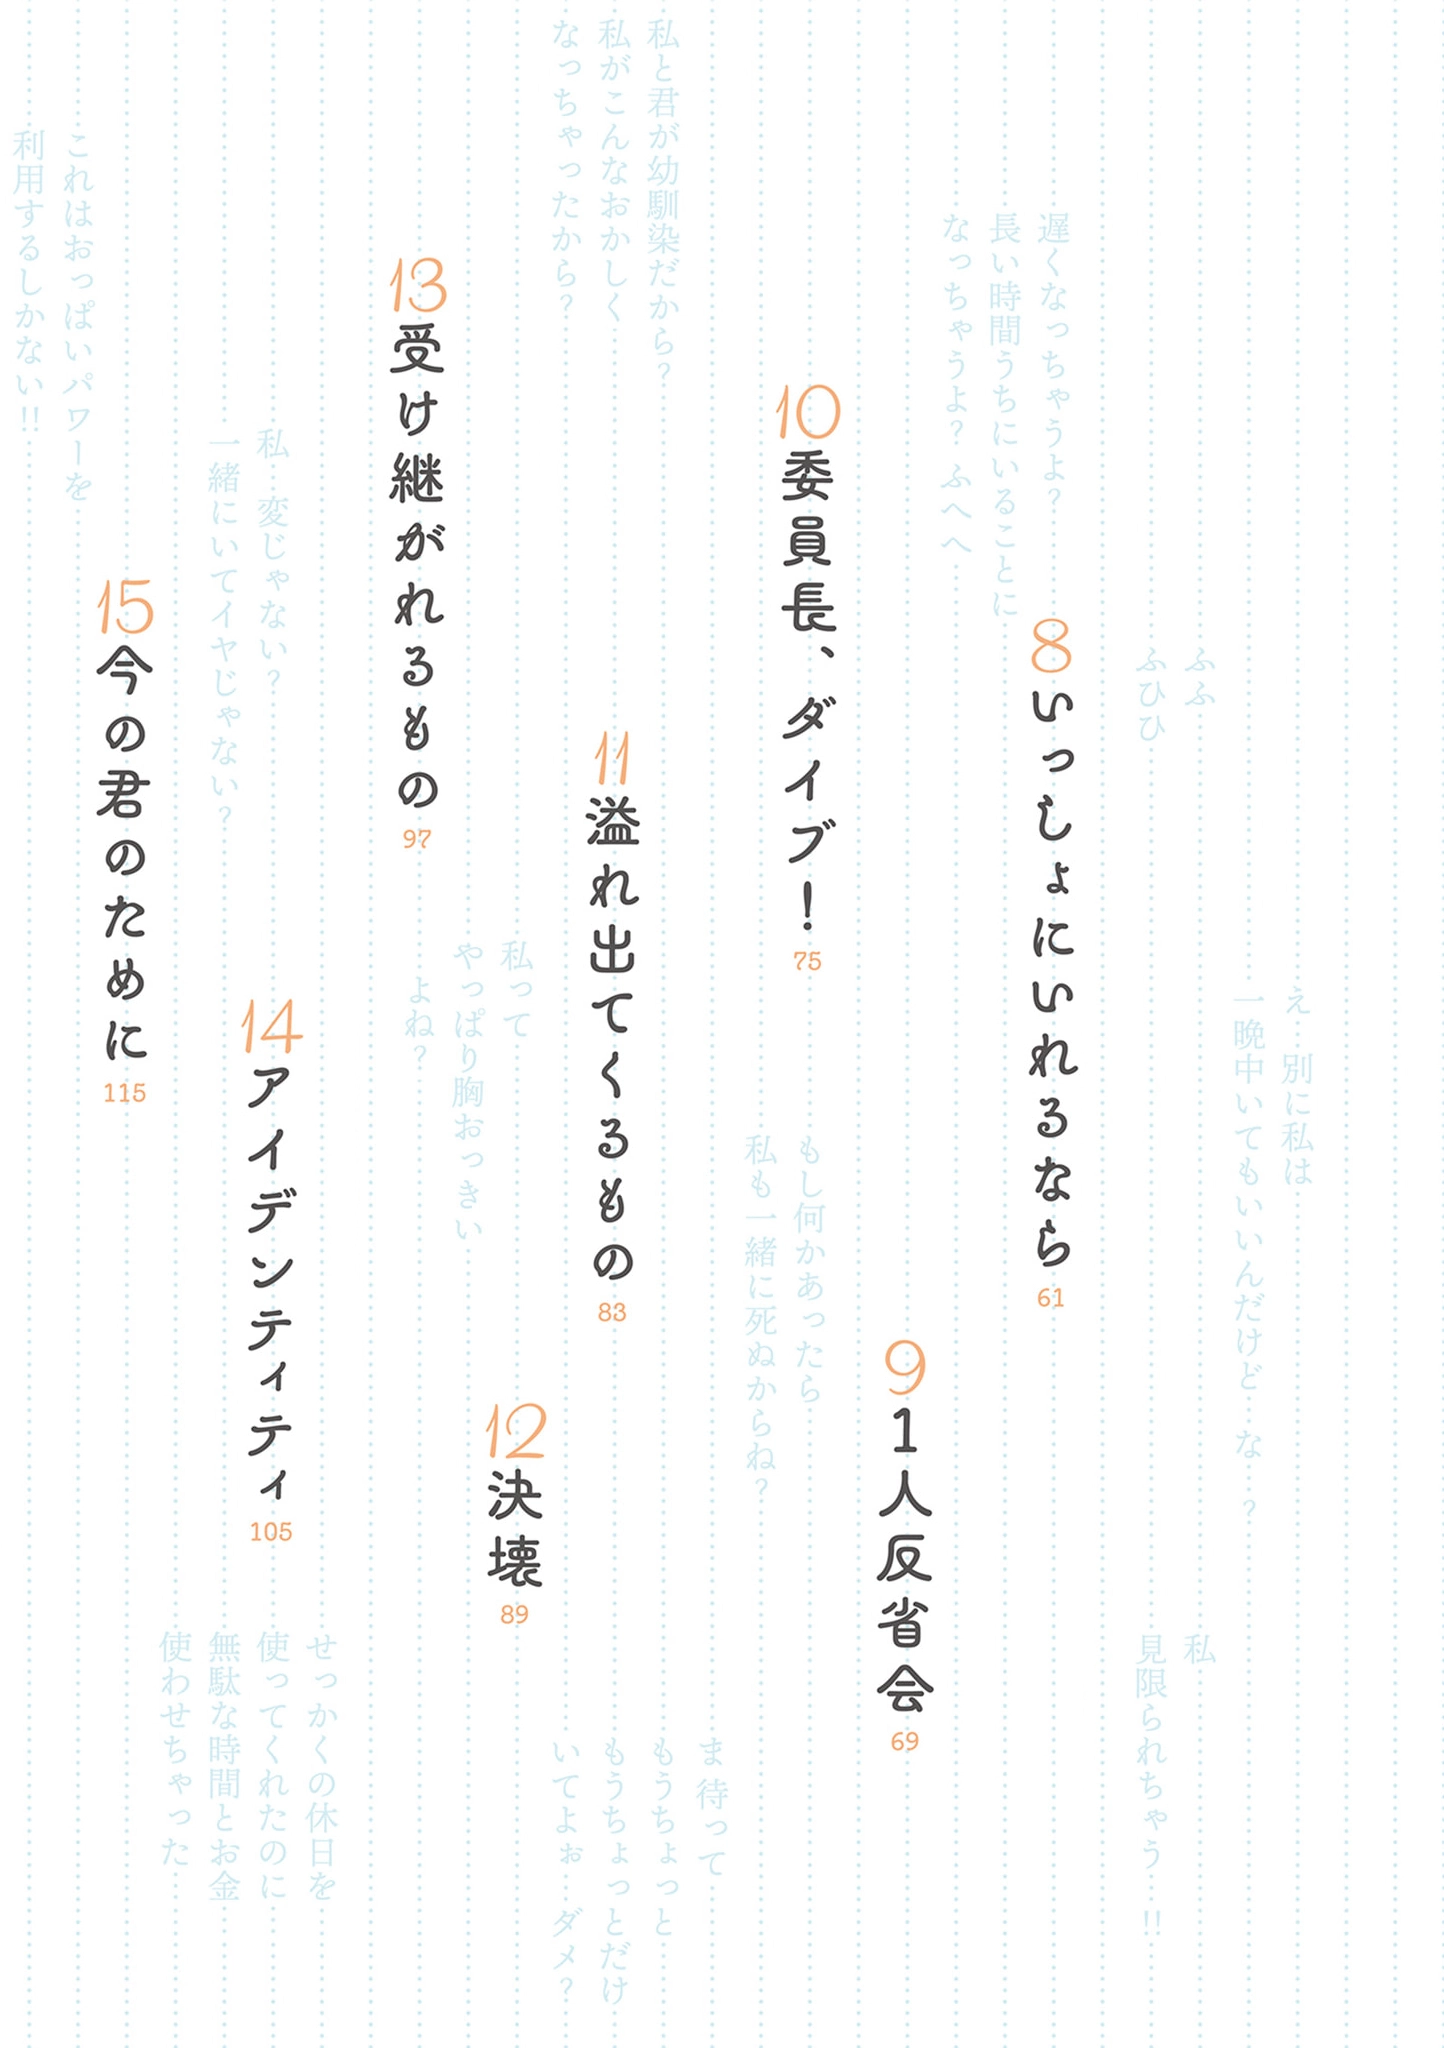 え 別に私は
一晩中いてもいいんだけど な ?
ふふ
ふひひ
私
見限られちゃう !!
8
いっしょにいれるなら
61
遅くなっちゃうよ?
長い時間うちにいることに
なっちゃうよ? ふへへ
9
1人反省会
69
10
委員長、ダイブ!
75
もし何かあったら
私も一緒に死ぬからね?
私と君が幼馴染だから?
私がこんなおかしく
なっちゃったから?
11
溢れ出てくるもの
83
ま 待って
もうちょっと
もうちょっとだけ
いてよぉ ダメ?
12
決壊
89
私って
やっぱり胸おっきい
よね?
13
受け継がれるもの
97
14
アイデンティティ
105
私 変じゃない?
一緒にいてイヤじゃない?
せっかくの休日を
使ってくれたのに
無駄な時間とお金
使わせちゃった
15
今の君のために
115
これはおっぱいパワーを
利用するしかない!!